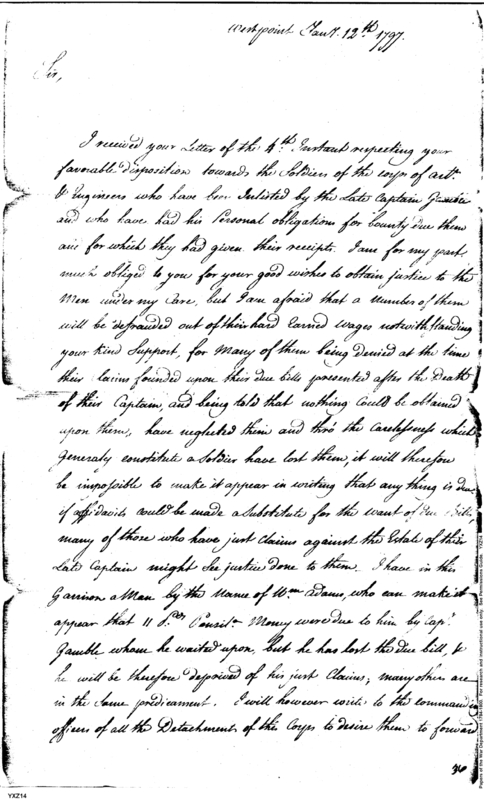 Westpoint Jany. 12th 1797.
Sir,
I received your Letter of the 4th Instant respecting your
favorable disposition towards the Soldiers of the corps of arty
& Engineers who have been Inlisted by the Late Captain
and who have had his Personal obligations for bounty due them
and for which they had given their receipts. I am for my part
much obliged to you for your good wishes to obtain justice to the
Men under my Care, but I am afraid that a number of them
will be defrauded out of their hard Earned wages notwithstanding
your kind Support, for Many of them being denied at the time
their Claims founded upon their due bills presented after the Death
of their Captain, and being told that nothing Could be obtained
upon them, have neglected them and thro the carelessness which
Generaly constitute a Soldier have lost them, it will therefore
be impossible to make it appear in writing that any thing is due
if affidavits could be made a Substitute for the want of due Bills,
many of those who have just Claims against the Estate of their
Late Captain might See justice done to them. I have in this
Garrison a Man by the Name of Wm Adams, who can make it
appear that 11 Money were due to him by Capt.
Gamble whom he waited upon, but he has lost the due bill, &
he will be therefore deprived of his just Claims; many others are
in the Same predicament. I will however write to the commanding
officers of all the Detachments of this Corps to desire them to forward
YXZ14